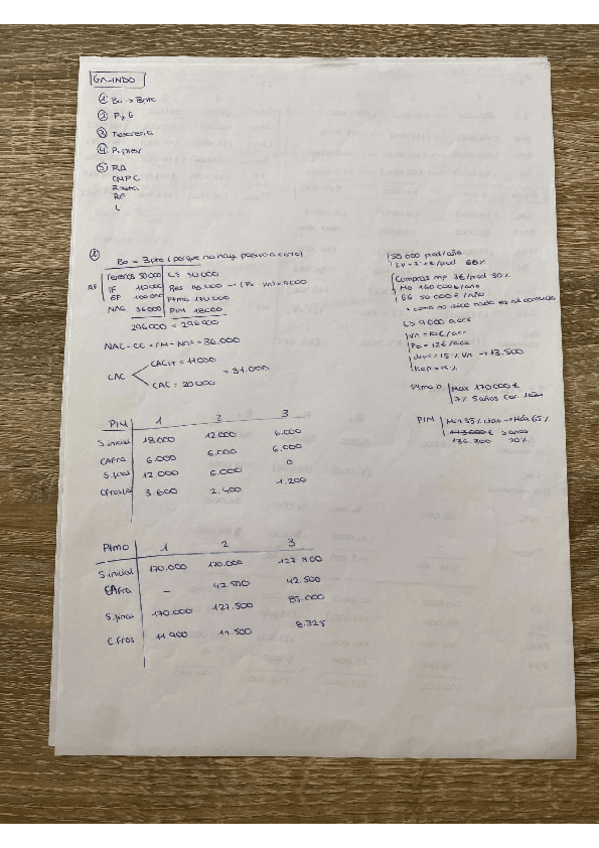 GALINDO
① Bo → Bpte
② P y G
③ Tesorería
④ P. prev
⑤ RA
CMPC
R. neta
RF
L
① Bo = Bpte (porque no hay pasivo a corto)
AF
Terrenos 50.000 | CS 90.000
IF 110.000 | Res 18.000 → (Po - Vn) = 9.000
EP 100.000 | Ptmo 170.000
NAC 36.000 | PIM 18.000
296.000 = 296.000
NAC - CC + FM - NAF = 36.000
CAC
CACIT = 11.000
CAC = 20.000
= 31.000
150.000 prod/año
60%
Compras mp 3€/prod 30%
MO 160.000€/año
GG 50.000€/año
CS 9.000 acc
Vn = 10€/acc
Po = 12€/acc
divs = 15% Vn → 13.500
Ken = 15%
Ptmo b | Max 170.000€
7% 5 años Car. 1 año
PIM | Min 35% → Máx 65%
3 años
136.300 20%
PIM 1 2 3
S. inicial 18.000 12.000 6.000
CAfra 6.000 6.000 6.000
S. final 12.000 6.000 0
Cfros 3.600 2.400 1.200
Ptmo 1 2 3
S. inicial 170.000 170.000 127.500
CAfra - 42.500 42.500
S. final 170.000 127.500 85.000
C. fros 11.900 11.900 8.925